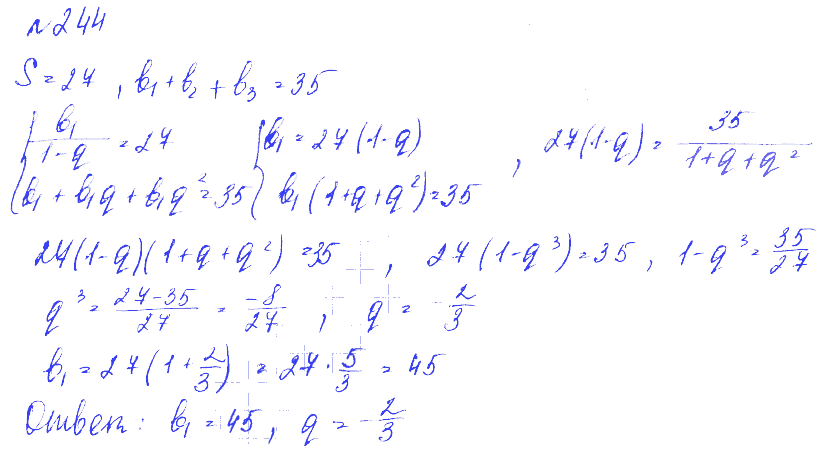 №244
S = 27 , b₁ + b₂ + b₃ = 35
{ b₁/(1-q) = 27 { b₁ = 27(1-q) , 27(1-q) = 35/(1+q+q²)
{ b₁ + b₁q + b₁q² = 35 { b₁(1+q+q²) = 35
27(1-q)(1+q+q²) = 35 , 27(1-q³) = 35 , 1-q³ = 35/27
q³ = (27-35)/27 = -8/27 , q = -2/3
b₁ = 27(1 + 2/3) = 27 · 5/3 = 45
Ответ: b₁ = 45, q = -2/3